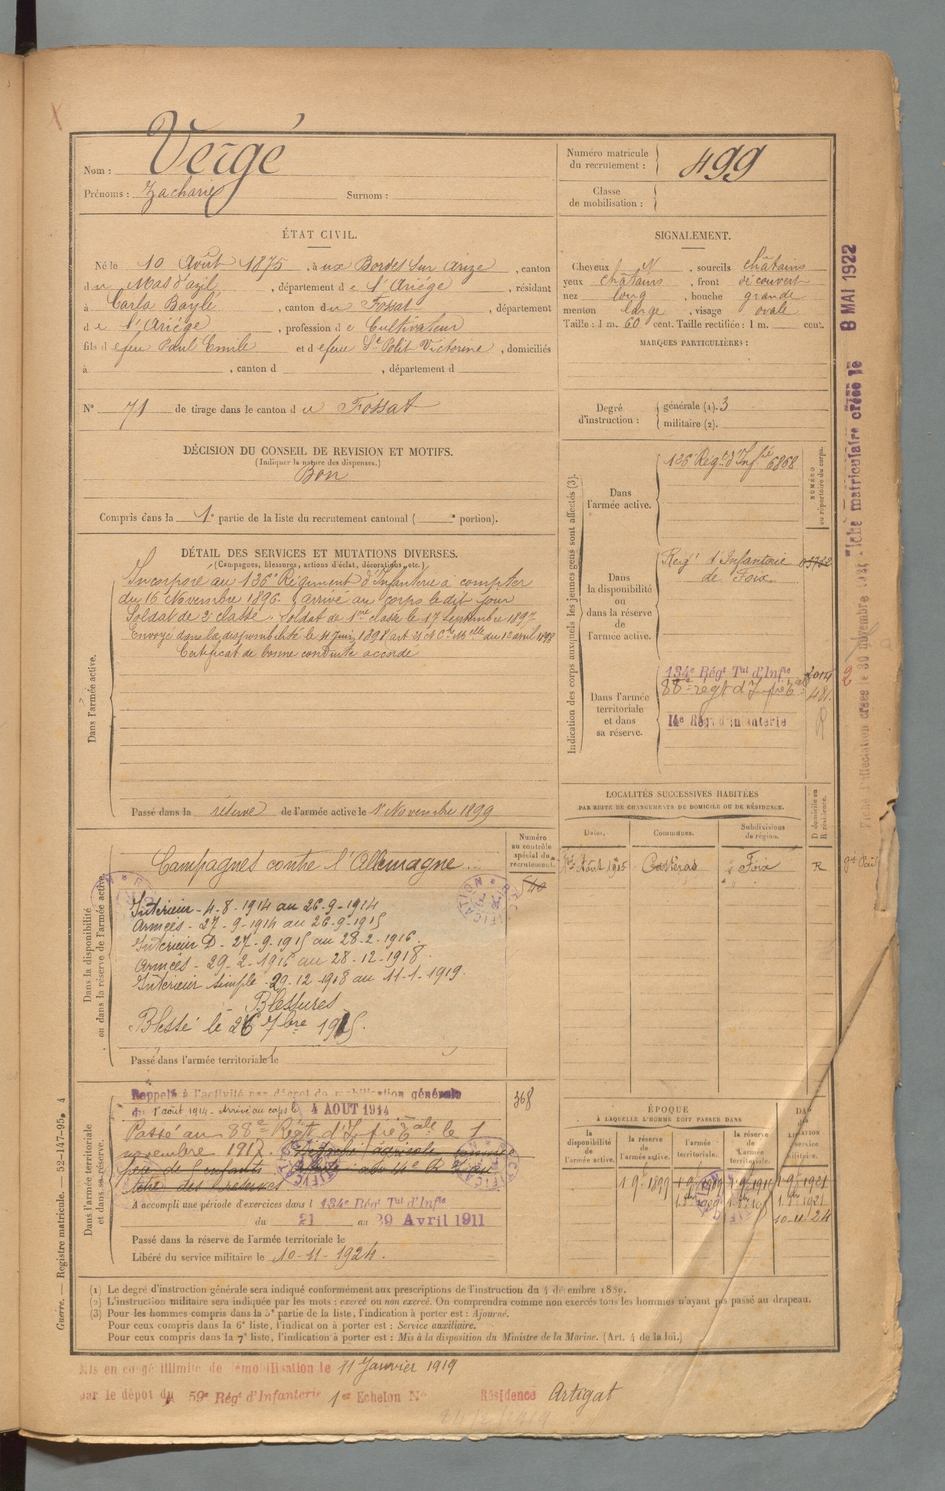 Nom : Vergé
Prénoms : Zacharie Surnom :
Numéro matricule du recrutement : 499
Classe de mobilisation :
ÉTAT CIVIL.
Né le 10 Août 1875, à ux Bordes sur Arize, canton
d u Mas d'azil, département de l'Ariège, résidant
à Carla Bayle, canton du Fossat, département
de l'Ariège, profession de Cultivateur
fils de feu Paul Emile et de feue St Polit Victorine, domiciliés
à , canton d , département d
N° 71 de tirage dans le canton du Fossat
SIGNALEMENT.
Cheveux , sourcils châtains
yeux châtains, front découvert
nez long, bouche grande
menton large, visage ovale
Taille : 1 m. 60 cent. Taille rectifiée : 1 m. cent.
MARQUES PARTICULIÈRES :
Degré d'instruction : générale (1). 3
militaire (2).
DÉCISION DU CONSEIL DE REVISION ET MOTIFS.
(Indiquer la nature des dispenses.)
Bon
Compris dans la 1e partie de la liste du recrutement cantonal ( e portion).
DÉTAIL DES SERVICES ET MUTATIONS DIVERSES.
(Campagnes, blessures, actions d'éclat, décorations, etc.)
Dans l'armée active.
Incorporé au 135e Régiment d'Infanterie à compter
du 16 Novembre 1896. Arrivé au corps le dit jour
Soldat de 2e classe. Soldat de 1ère classe le 17 Septembre 1897
Envoyé dans la disponibilité le
Certificat de bonne conduite accordé
Passé dans la réserve de l'armée active le 1er Novembre 1899
Indication des corps auxquels les jeunes gens sont affectés (3).
NUMÉRO au répertoire du corps.
Dans l'armée active.
135e Régt d'Infie 6868
Dans la disponibilité ou dans la réserve de l'armée active.
Régt d'Infanterie
de Foix
Dans l'armée territoriale et dans sa réserve.
134e Régt Tal d'Infie 2014
88e regt d'Infie tale
14e Régt d'infanterie
LOCALITÉS SUCCESSIVES HABITÉES
PAR SUITE DE CHANGEMENTS DE DOMICILE OU DE RÉSIDENCE.
Dates. Communes. Subdivisions de région. D domicile ou R résidence.
Août 1905 Castéras Foix R
Dans la disponibilité ou dans la réserve de l'armée active.
Numéro au contrôle spécial du recrutement.
540
Campagnes contre l'Allemagne
Intérieur - 4-8-1914 au 26-9-1914
Armées - 27-9-1914 au 26-9-1915
Intérieur D - 27-9-1915 au 28-2-1916
Armées - 29-2-1916 au 28-12-1918
Intérieur simple - 29-12-1918 au 11-1-1919
Blessures
Blessé le 26 7bre 1915.
Passé dans l'armée territoriale le
Dans l'armée territoriale et dans sa réserve.
368
Rappelé à l'activité par décret de mobilisation générale
du 1er août 1914 - Arrivé au corps le 4 AOUT 1914
Passé au 88e Régt d'Infie tale le 1
novembre 1917.
père de 5 enfants
A accompli une période d'exercices dans l 134e Régt Tal d'Infie
du 21 au 29 Avril 1911
Passé dans la réserve de l'armée territoriale le
Libéré du service militaire le 10-11-1924.
ÉPOQUE
À LAQUELLE L'HOMME DOIT PASSER DANS
la disponibilité de l'armée active. la réserve de l'armée active. l'armée territoriale. la réserve de l'armée territoriale.
1 9e 1899
10-11-24
(1) Le degré d'instruction générale sera indiqué conformément aux prescriptions de l'instruction du 4 décembre 1889.
(2) L'instruction militaire sera indiquée par les mots : exercé ou non exercé. On comprendra comme non exercés tous les hommes n'ayant pas passé au drapeau.
(3) Pour les hommes compris dans la 5e partie de la liste, l'indication à porter est : Ajourné.
Pour ceux compris dans la 6e liste, l'indication à porter est : Service auxiliaire.
Pour ceux compris dans la 7e liste, l'indication à porter est : Mis à la disposition du Ministre de la Marine. (Art. 4 de la loi.)
Mis en congé illimité de démobilisation le 11 Janvier 1919
par le dépôt du 59e Régt d'Infanterie 1er Echelon N° Résidence Artigat
Guerre. — Registre matricule. — 52-147-95. 4
Fiche matriculaire créée le 8 MAI 1922